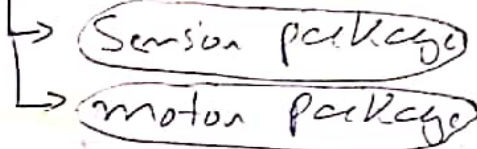 Sension package
motor package